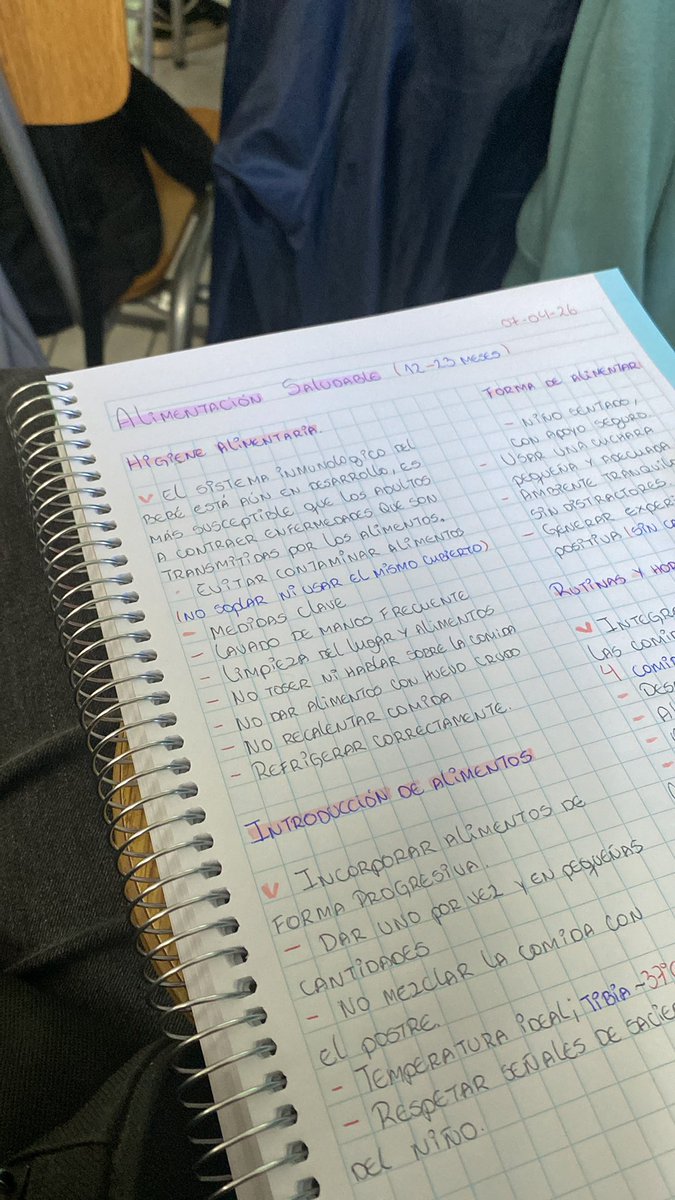 07-04-26
ALIMENTACIÓN SALUDABLE (12-23 MESES)
HIGIENE ALIMENTARIA.
EL SISTEMA INMUNOLÓGICO DEL
BEBÉ ESTÁ AÚN EN DESARROLLO, ES
MÁS SUSCEPTIBLE QUE LOS ADULTOS
A CONTRAER ENFERMEDADES QUE SON
TRANSMITIDAS POR LOS ALIMENTOS.
· EVITAR CONTAMINAR ALIMENTOS
(NO SOPLAR NI USAR EL MISMO CUBIERTO)
- MEDIDAS CLAVE
- LAVADO DE MANOS FRECUENTE
- LIMPIEZA DEL LUGAR Y ALIMENTOS
- NO TOSER NI HABLAR SOBRE LA COMIDA
- NO DAR ALIMENTOS CON HUEVO CRUDO
- NO RECALENTAR COMIDA
- REFRIGERAR CORRECTAMENTE.
INTRODUCCIÓN DE ALIMENTOS
INCORPORAR ALIMENTOS DE
FORMA PROGRESIVA.
- DAR UNO POR VEZ Y EN PEQUEÑAS
CANTIDADES
- NO MEZCLAR LA COMIDA CON
EL POSTRE.
- TEMPERATURA IDEAL; TIBIA ~37°C
- RESPETAR SEÑALES DE
DEL NIÑO.
FORMA DE ALIMENTAR
- NIÑO SENTADO,
CON APOYO SEGURO.
- USAR UNA CUCHARA
PEQUEÑA Y ADECUADA
- AMBIENTE
SIN DISTRACTORES.
- GENERAR
POSITIVA (SIN
RUTINAS Y
LAS
4